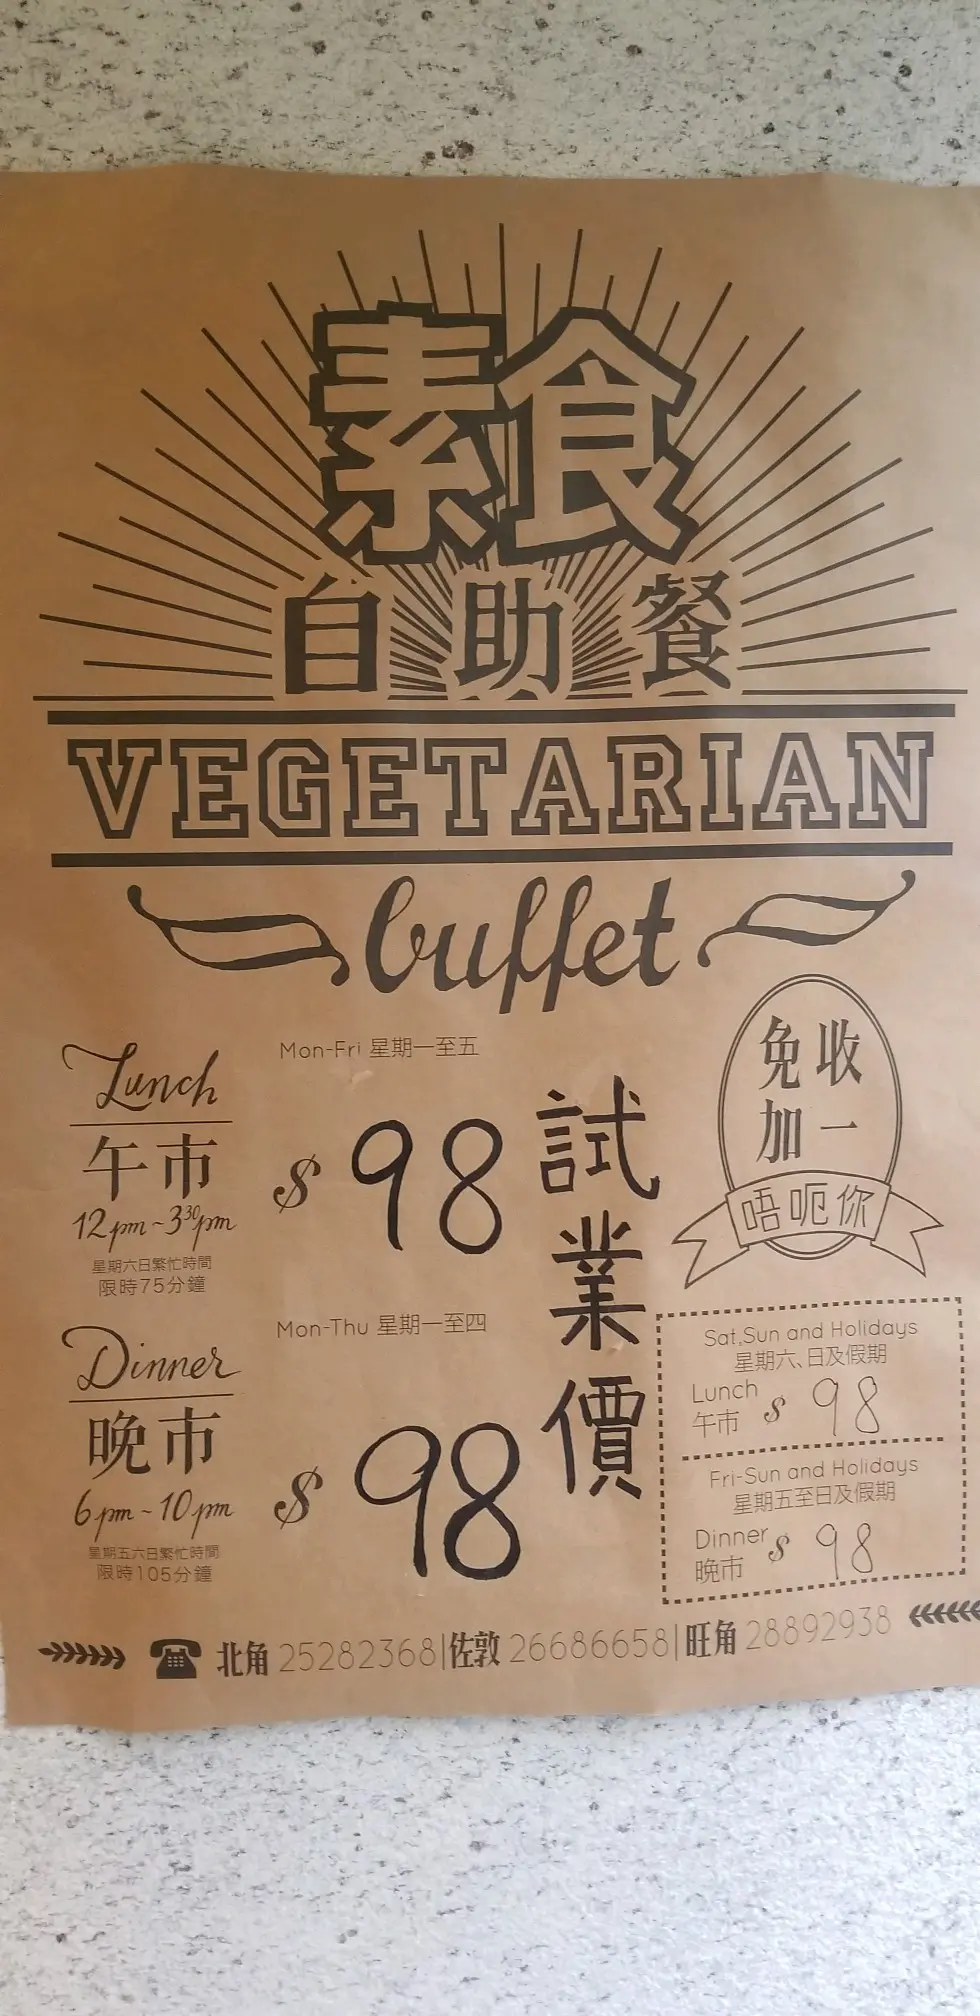 素食
自助餐
VEGETARIAN
buffet
Lunch
午市
12pm~3³⁰pm
星期六日繁忙時間
限時75分鐘
Mon-Fri 星期一至五
$ 98
Dinner
晚市
6pm~10pm
星期五六日繁忙時間
限時105分鐘
Mon-Thu 星期一至四
$ 98
試業價
免收
加一
唔呃你
Sat,Sun and Holidays
星期六、日及假期
Lunch
午市
$ 98
Fri-Sun and Holidays
星期五至日及假期
Dinner
晚市
$ 98
北角 25282368|佐敦 26686658|旺角 28892938